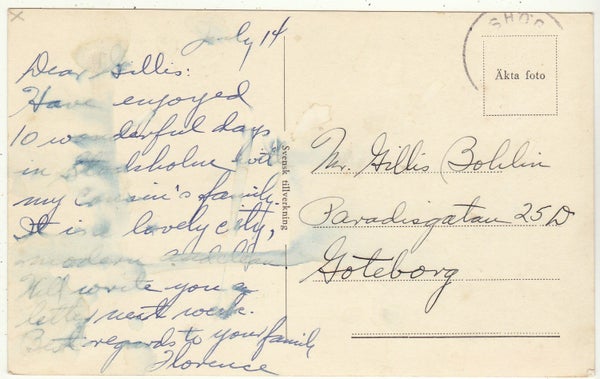 July 14
Dear Gillis:
Have enjoyed
10 wonderful days
in Stockholm with
my cousin's family.
It is a lovely city,
modern and clean
Will write you a
letter next week.
Best regards to your family
Florence
Svensk tillverkning
Äkta foto
Mr. Gillis Bohlin
Paradisgatan 25 D
Göteborg